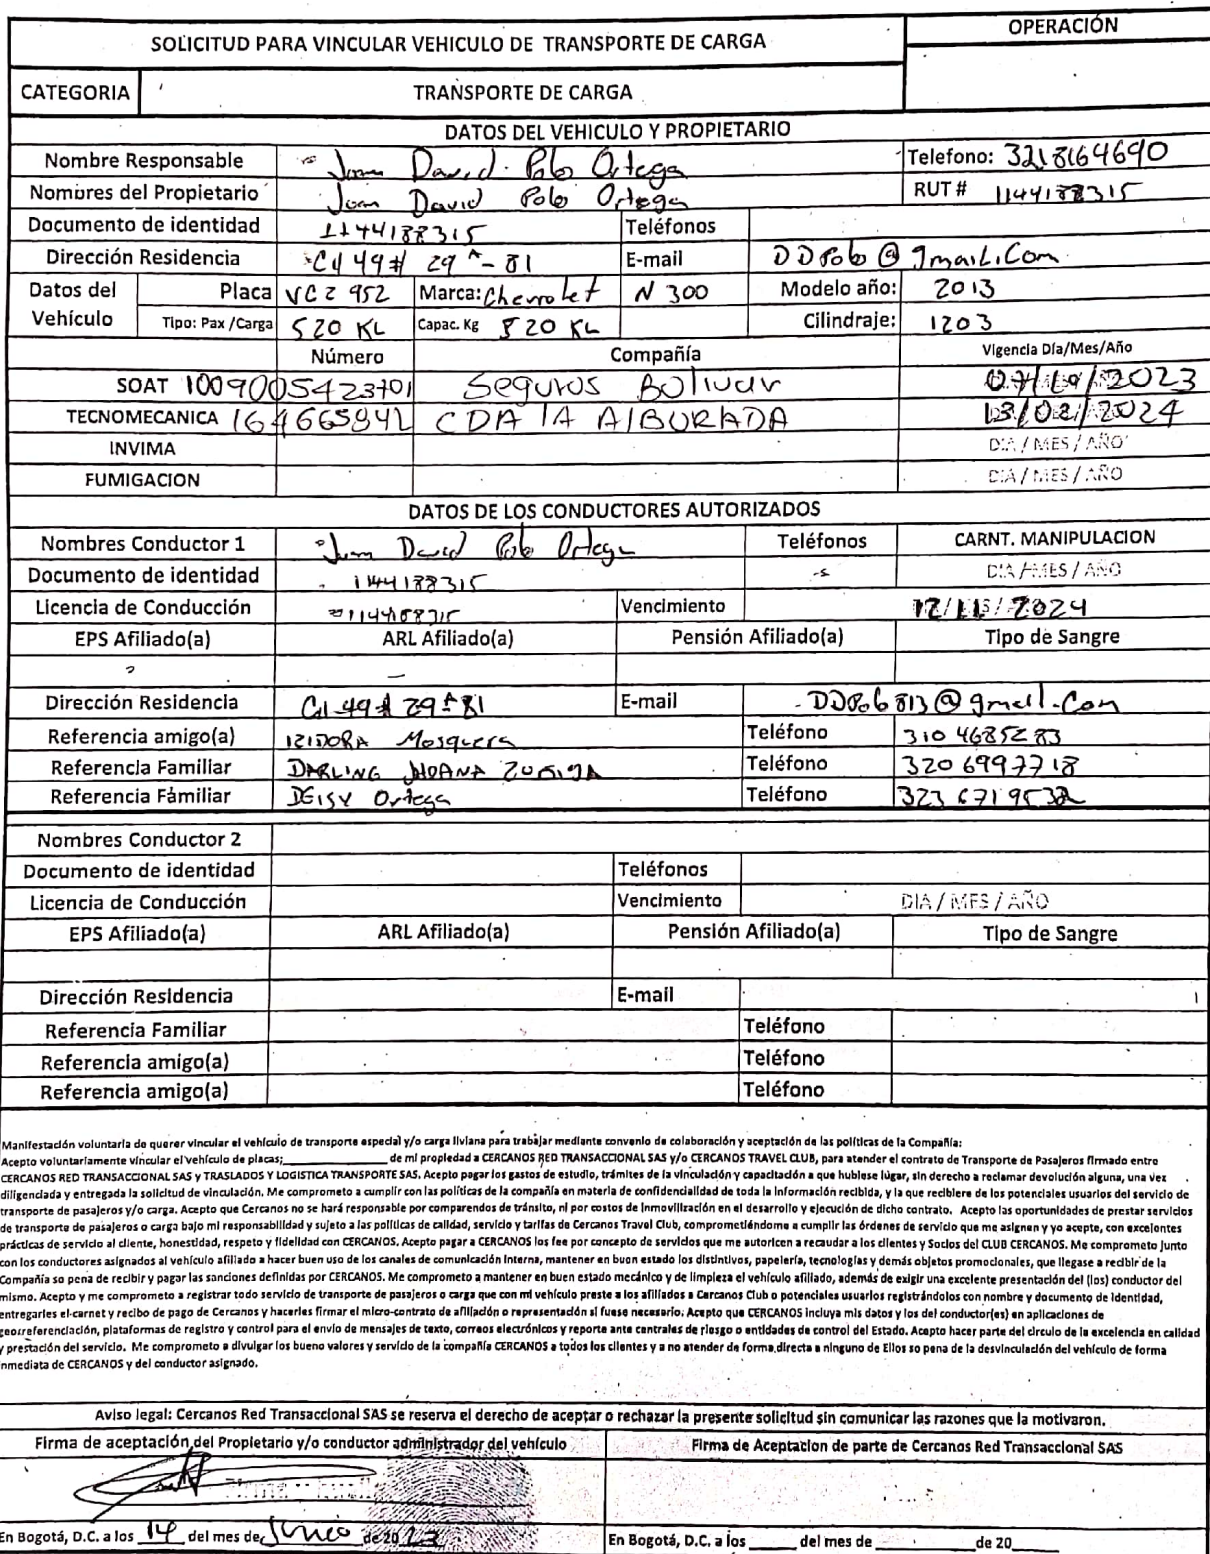 SOLICITUD PARA VINCULAR VEHICULO DE TRANSPORTE DE CARGA
OPERACIÓN
CATEGORIA TRANSPORTE DE CARGA
DATOS DEL VEHICULO Y PROPIETARIO
Nombre Responsable Juan David Polo Ortega Telefono: 3218164690
Nombres del Propietario Juan David Polo Ortega RUT # 1144188315
Documento de identidad 1144188315 Teléfonos
Dirección Residencia Cll 49# 29 A - 81 E-mail DDPolo@gmail.Com
Datos del Vehículo Placa VCZ 952 Marca: Chevrolet N 300 Modelo año: 2013
Tipo: Pax /Carga 520 KL Capac. Kg 520 KL Cilindraje: 1203
Número Compañía Vigencia Día/Mes/Año
SOAT 1009005423701 Seguros Bolivar 2023
TECNOMECANICA 164665842 CDA lA AlBURADA 13/02/2024
INVIMA DIA / MES / AÑO
FUMIGACION DIA / MES / AÑO
DATOS DE LOS CONDUCTORES AUTORIZADOS
Nombres Conductor 1 Juan David Polo Ortega Teléfonos CARNT. MANIPULACION
Documento de identidad 1144188315 DIA / MES / AÑO
Licencia de Conducción 1144188315 Vencimiento 12/11/2024
EPS Afiliado(a) ARL Afiliado(a) Pensión Afiliado(a) Tipo de Sangre
Dirección Residencia Cll 49# 29 A 81 E-mail DDPolo813@gmail.Com
Referencia amigo(a) IZIDORA Mosquera Teléfono 310 4685283
Referencia Familiar DARLING JHOANA ZUÑIGA Teléfono 320 6997718
Referencia Fámiliar DEISY Ortega Teléfono 323 6719532
Nombres Conductor 2
Documento de identidad Teléfonos
Licencia de Conducción Vencimiento DIA / MES / AÑO
EPS Afiliado(a) ARL Afiliado(a) Pensión Afiliado(a) Tipo de Sangre
Dirección Residencia E-mail
Referencia Familiar Teléfono
Referencia amigo(a) Teléfono
Referencia amigo(a) Teléfono
Manifestación voluntaria de querer vincular el vehículo de transporte especial y/o carga liviana para trabajar mediante convenio de colaboración y aceptación de las políticas de la Compañía:
Acepto voluntariamente vincular el vehículo de placas;____________ de mi propiedad a CERCANOS RED TRANSACCIONAL SAS y/o CERCANOS TRAVEL CLUB, para atender el contrato de Transporte de Pasajeros firmado entre
CERCANOS RED TRANSACCIONAL SAS y TRASLADOS Y LOGISTICA TRANSPORTE SAS. Acepto pagar los gastos de estudio, trámites de la vinculación y capacitación a que hubiese lúgar, sin derecho a reclamar devolución alguna, una vez
diligenciada y entregada la solicitud de vinculación. Me comprometo a cumplir con las políticas de la compañía en materia de confidencialidad de toda la información recibida, y la que recibiere de los potenciales usuarios del servicio de
transporte de pasajeros y/o carga. Acepto que Cercanos no se hará responsable por comparendos de tránsito, ni por costos de inmovilización en el desarrollo y ejecución de dicho contrato. Acepto las oportunidades de prestar servicios
de transporte de pasajeros o carga bajo mi responsabilidad y sujeto a las políticas de calidad, servicio y tarifas de Cercanos Travel Club, comprometiéndome a cumplir las órdenes de servicio que me asignen y yo acepte, con excelentes
prácticas de servicio al cliente, honestidad, respeto y fidelidad con CERCANOS. Acepto pagar a CERCANOS los fee por concepto de servicios que me autoricen a recaudar a los clientes y Socios del CLUB CERCANOS. Me comprometo junto
con los conductores asignados al vehículo afiliado a hacer buen uso de los canales de comunicación interna, mantener en buen estado los distintivos, papelería, tecnologías y demás objetos promocionales, que llegase a recibir de la
Compañía so pena de recibir y pagar las sanciones definidas por CERCANOS. Me comprometo a mantener en buen estado mecánico y de limpieza el vehículo afiliado, además de exigir una excelente presentación del (los) conductor del
mismo. Acepto y me comprometo a registrar todo servicio de transporte de pasajeros o carga que con mi vehículo preste a los afiliados a Cercanos Club o potenciales usuarios registrándolos con nombre y documento de identidad,
entregarles el carnet y recibo de pago de Cercanos y hacerles firmar el micro-contrato de afiliación o representación si fuese necesario. Acepto que CERCANOS incluya mis datos y los del conductor(es) en aplicaciones de
georreferenciación, plataformas de registro y control para el envío de mensajes de texto, correos electrónicos y reporte ante centrales de riesgo o entidades de control del Estado. Acepto hacer parte del círculo de la excelencia en calidad
y prestación del servicio. Me comprometo a divulgar los bueno valores y servicio de la compañía CERCANOS a todos los clientes y a no atender de forma directa a ninguno de Ellos so pena de la desvinculación del vehículo de forma
inmediata de CERCANOS y del conductor asignado.
Aviso legal: Cercanos Red Transaccional SAS se reserva el derecho de aceptar o rechazar la presente solicitud sin comunicar las razones que la motivaron.
Firma de aceptación del Propietario y/o conductor administrador del vehículo Firma de Aceptacion de parte de Cercanos Red Transaccional SAS
En Bogotá, D.C. a los 14 del mes de Junio de 2023 En Bogotá, D.C. a los _____ del mes de _____ de 20_____